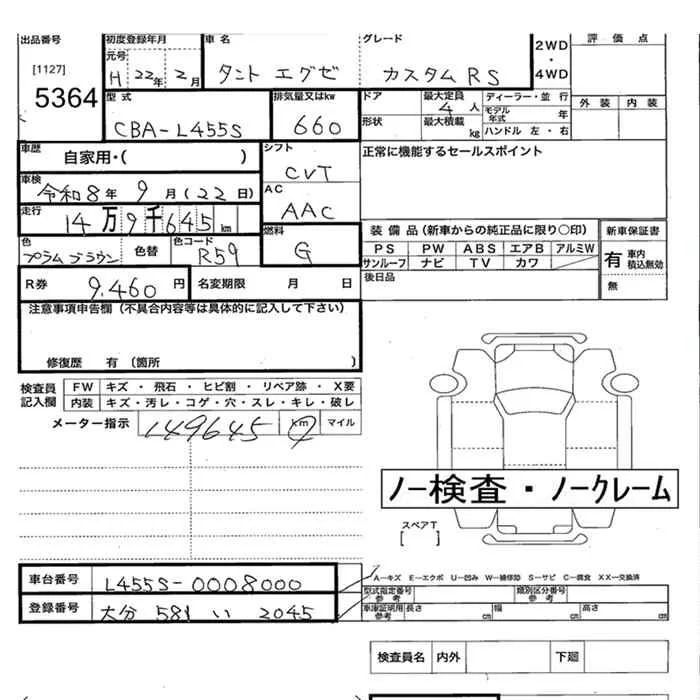 出品番号 初度登録年月 車名 グレード 2WD・4WD 評価点
[1127] 元号
5364 H 22年 2月 タント エグゼ カスタム RS
外装 内装
型式 排気量又はkw ドア 最大定員 ディーラー・並行
CBA-L455S 660 4人 モデル年式 年
形状 最大積載 kg ハンドル 左・右
車歴 自家用・( ) シフト 正常に機能するセールスポイント
CVT
車検 令和8年 9月(22日) AC
AAC
走行 14万9千645km 燃料 装備品(新車からの純正品に限り○印) 新車保証書
色 色替 色コード PS PW ABS エアB アルミW 有 車内積込無効
プラム ブラウン R59 G サンルーフ ナビ TV カワ
R券 9,460円 名変期限 月 日 後日品 無
注意事項申告欄(不具合内容等は具体的に記入して下さい)
修復歴 有 (箇所 )
検査員記入欄 FW キズ・飛石・ヒビ割・リペア跡・X要
内装 キズ・汚レ・コゲ・穴・スレ・キレ・破レ
メーター指示 149645 km マイル
ノー検査・ノークレーム
スペアT
[ ]
車台番号 L455S-0008000
A―キズ E―エクボ U―凹み W―補修跡 S―サビ C―腐食 XX―交換済
型式指定番号 参考 類別区分番号 参考
登録番号 大分 581 い 2045
車庫証明用 参考 長さ cm 幅 cm 高さ cm
検査員名 内外 下廻